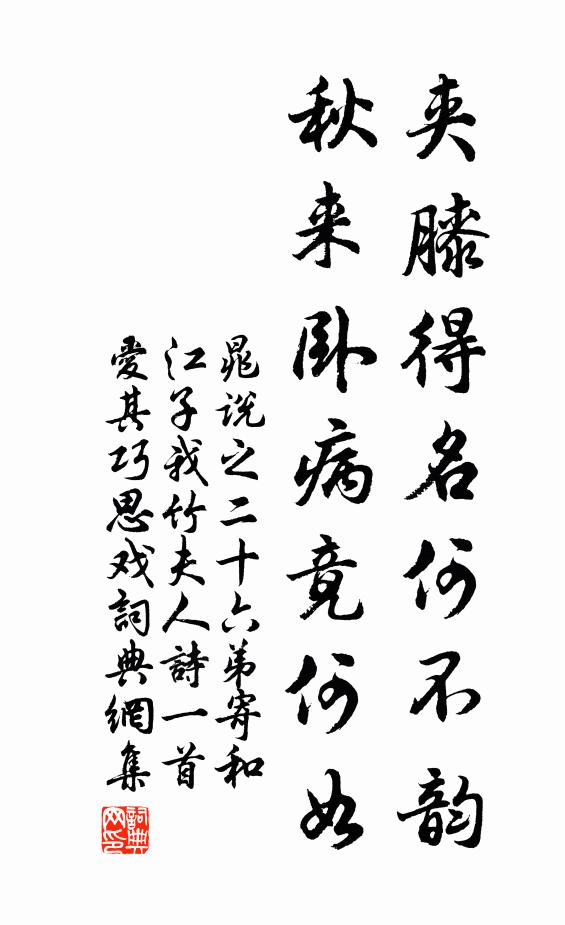 夹膝得名何不韵
秋来卧病竟何如
晁说之二十六弟寄和
江子我竹夫人詩一首
愛其巧思戏詞典網集
詞典網印